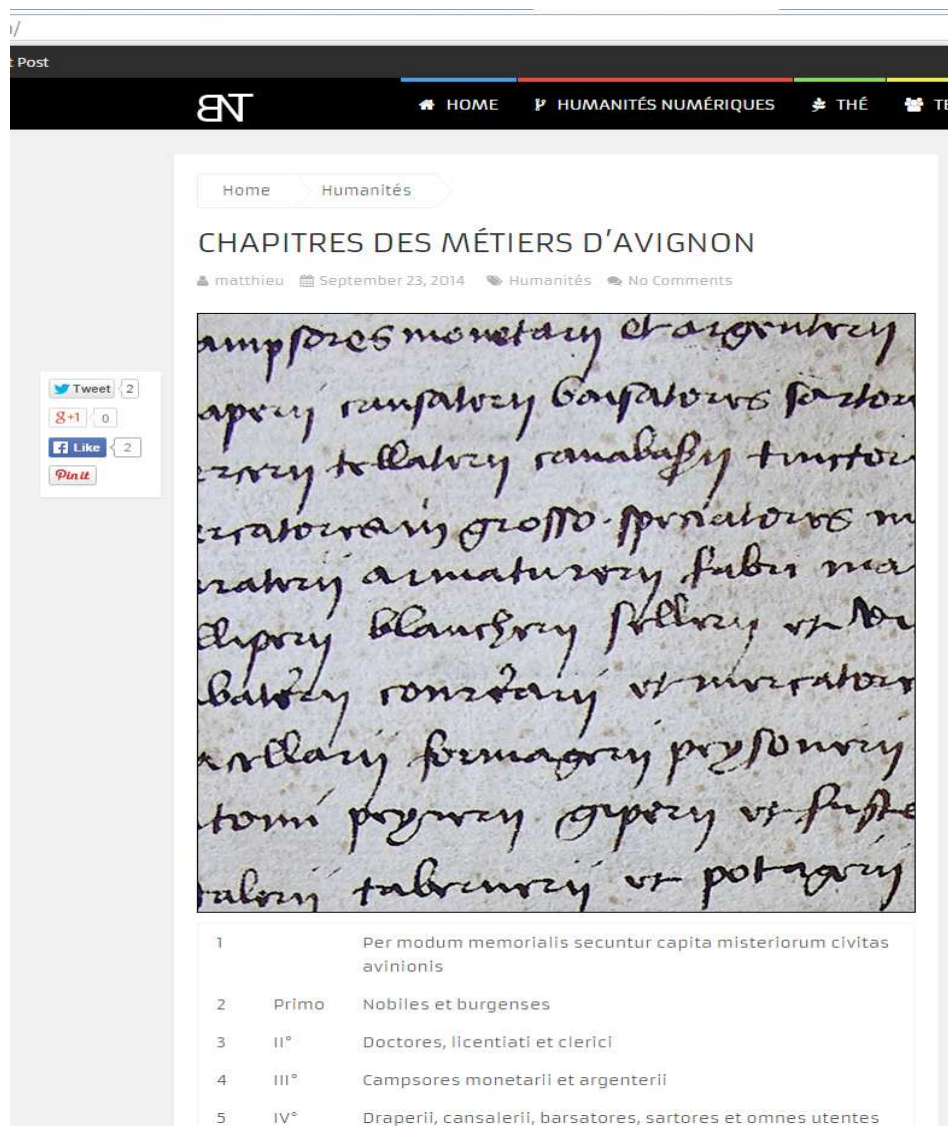 /
t Post
BNT
HOME HUMANITÉS NUMÉRIQUES THÉ TE
Home Humanités
CHAPITRES DES MÉTIERS D'AVIGNON
matthieu September 23, 2014 Humanités No Comments
Tweet 2
g+1 0
Like 2
Pin it
ampsores monetarii et argenterii
aperii sartor
ercerii tellaterii tinctor
ercatores in grosso speciatores m
armaturerii fabri ma
lliperii blancherii sellerii et
et mercatore
acellarii formagerii peysonerii
tomi peyrerii giperii et fuste
talerii tabernerii et potagerii
1 Per modum memorialis secuntur capita misteriorum civitas
avinionis
2 Primo Nobiles et burgenses
3 II° Doctores, licentiati et clerici
4 III° Campsores monetarii et argenterii
5 IV° Draperii, cansalerii, barsatores, sartores et omnes utentes